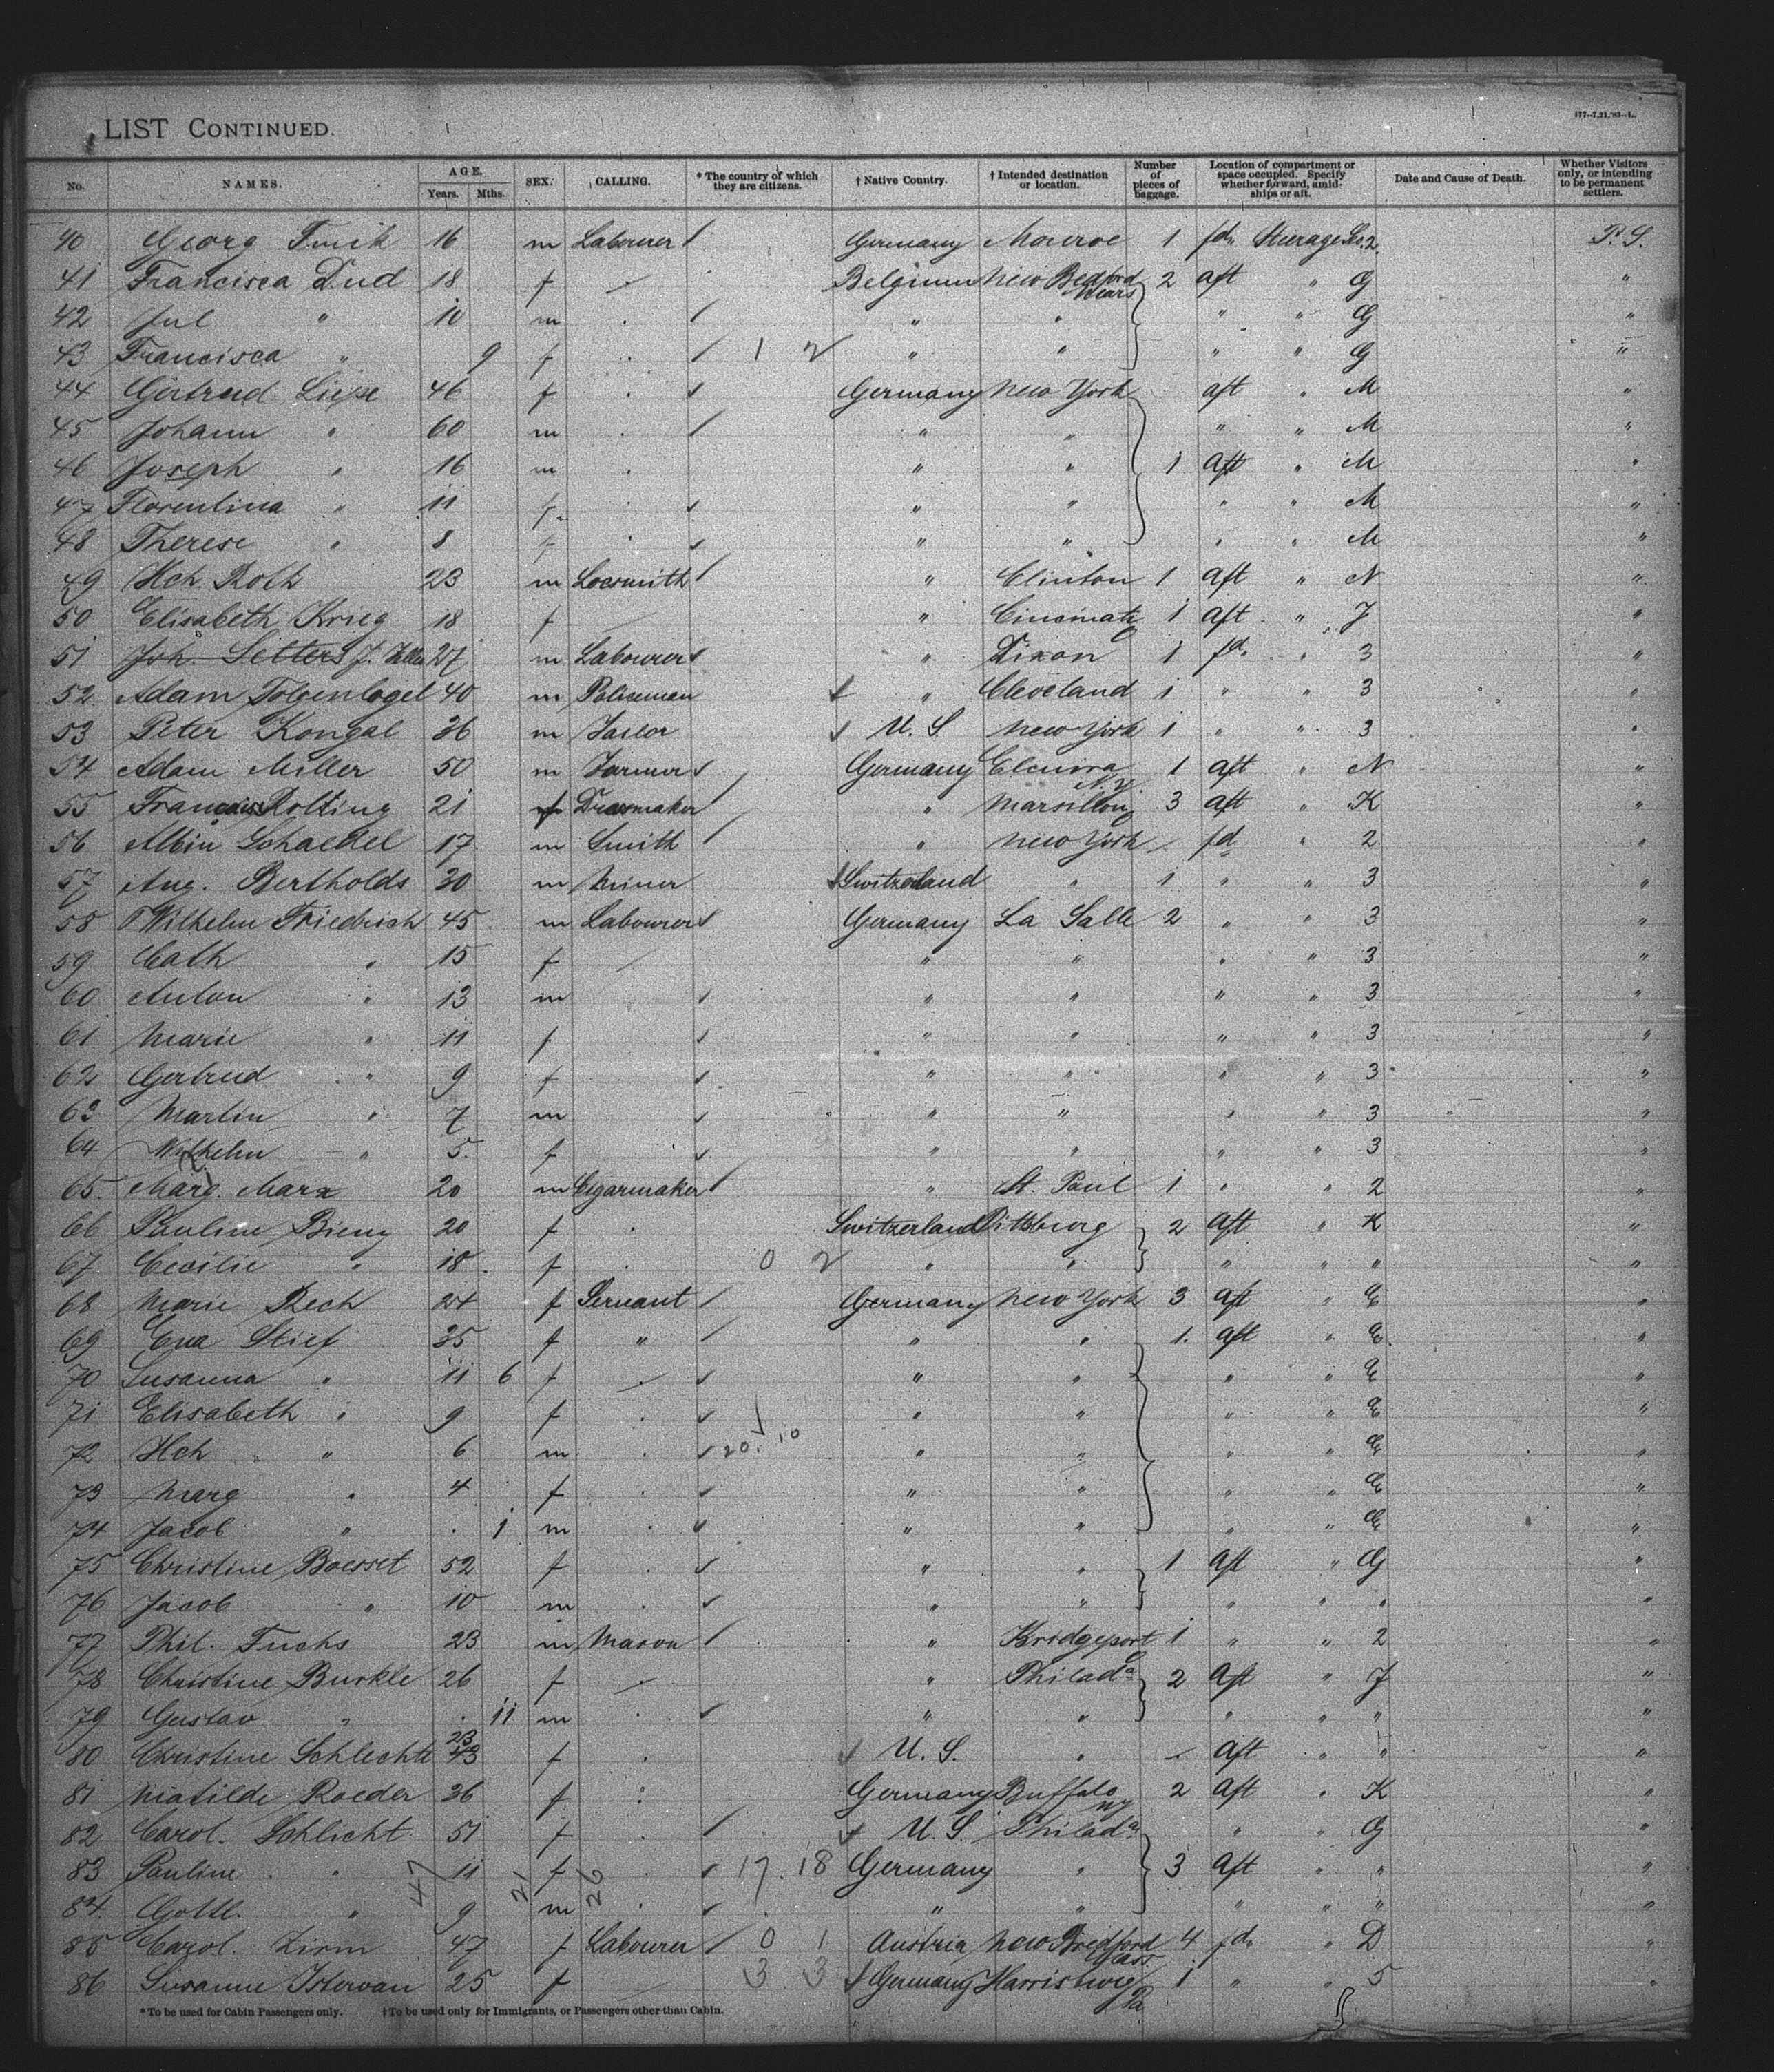 LIST CONTINUED.
177--7,21,'93--L.
No. NAMES. AGE. Years. Mths. SEX. CALLING. * The country of which they are citizens. † Native Country. † Intended destination or location. Number of pieces of baggage. Location of compartment or space occupied. Specify whether forward, amidships or aft. Date and Cause of Death. Whether Visitors only, or intending to be permanent settlers.
40 Georg 16 m Labourer Germany Monroe 1 fd. Steerage 2 P. S.
41 Francisca Dud 18 f Belgium New Bedford 2 aft " G "
42 Jul " 10 m " " " " G "
43 Francisca " 9 f 1 2 " " " " G "
44 Gertrud 46 f Germany New York aft " M "
45 Johann " 60 m " " " " M "
46 Joseph " 16 m " " 1 aft " M "
47 Florentina " 11 f " " " " M "
48 Therese " 8 f " " " " M "
49 Hch. Roth 23 m Locsmith " Clinton 1 aft " N "
50 Elisabeth Krieg 18 f " Cincinati 1 aft " J "
51 Joh. Setters J. 27 m Labourer " Dixon 1 fd. " 3 "
52 Adam 40 m Policeman " Cleveland 1 " " 3 "
53 Peter Kongal 36 m Tailor U. S New York 1 " " 3 "
54 Adam Miller 50 m Farmer Germany 1 aft " N "
N.Y.
55 Rolting 21 f Dressmaker " 3 aft " K "
56 Albin Schaedel 17 m Smith " New York fd " 2 "
57 Aug. Bertholds 30 m Miner Switzerland " 1 " " 3 "
58 Wilhelm Friedrich 45 m Labourer Germany La Salle 2 " " 3 "
59 Cath " 15 f " " " " 3 "
60 Anton " 13 m " " " " 3 "
61 Marie " 11 f " " " " 3 "
62 Gertrud " 9 f " " " " 3 "
63 Martin " 7 m " " " " 3 "
64 Wilhelm " 5 f " " " " 3 "
65 Marx 20 m Cigarmaker " St. Paul 1 " " 2 "
66 Pauline Bieny 20 f Switzerland Pittsburg 2 aft " K "
67 Cecilie " 18 f 0 2 " " " " " "
68 Marie Rech 24 f Servant Germany New York 3 aft " E "
69 Eva Stief 35 f " " " 1 aft " E "
70 Susanna " 11 6 f " " " " E "
71 Elisabeth " 9 f " " " " E "
72 Hch " 6 m 20 10 " " " " E "
73 Marg " 4 f " " " " E "
74 Jacob " 1 m " " " " E "
75 Christine Boesset 52 f " " 1 aft " G "
76 Jacob " 10 m " " " " " "
77 Phil. Fuchs 23 m Mason " Bridgeport 1 " " 2 "
78 Christine Burkle 26 f " Philada 2 aft " J "
79 Gustav " 11 m " " " " " "
80 Christine Schlechte 23 43 f U. S. " - aft " " "
81 Matilde Roeder 36 f Germany Buffalo NY 2 aft " K "
82 Carol. Schlicht 51 f U. S. Philada " " G "
83 Pauline " 11 f 17 18 Germany " 3 aft " " "
47 21 26
84 Gottl. " 9 m " " " " " "
85 Carol. Zirm 47 f Labourer 0 1 Austria New Bedford Mass. 4 fd. " D "
86 Susanne Istervan 25 f 3 3 Germany Harrisburg Pa 1 " " 5 "
* To be used for Cabin Passengers only. † To be used only for Immigrants, or Passengers other than Cabin.